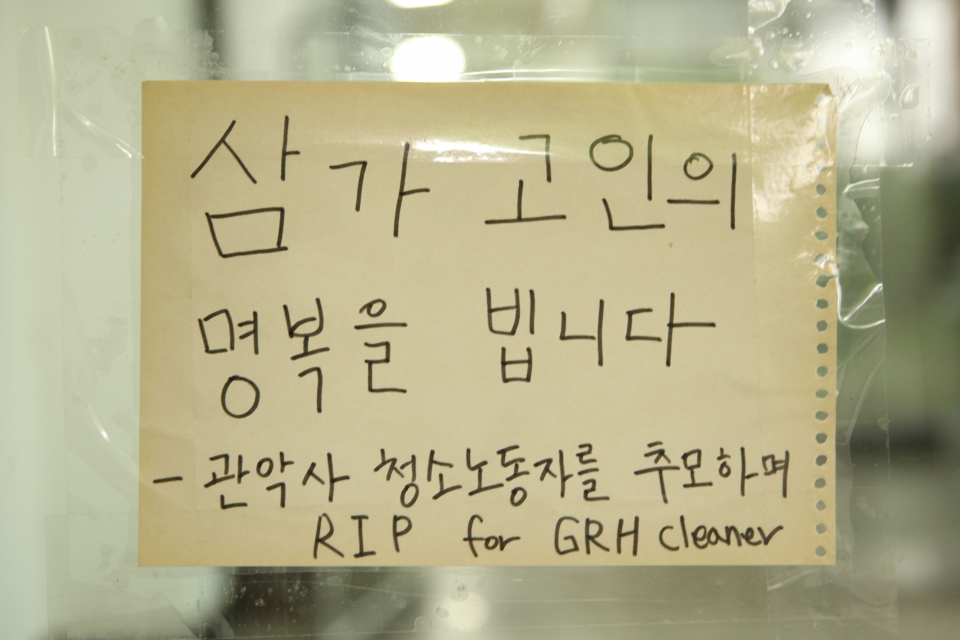 삼가 고인의
명복을 빕니다
- 관악사 청소노동자를 추모하며
RIP for GRH cleaner